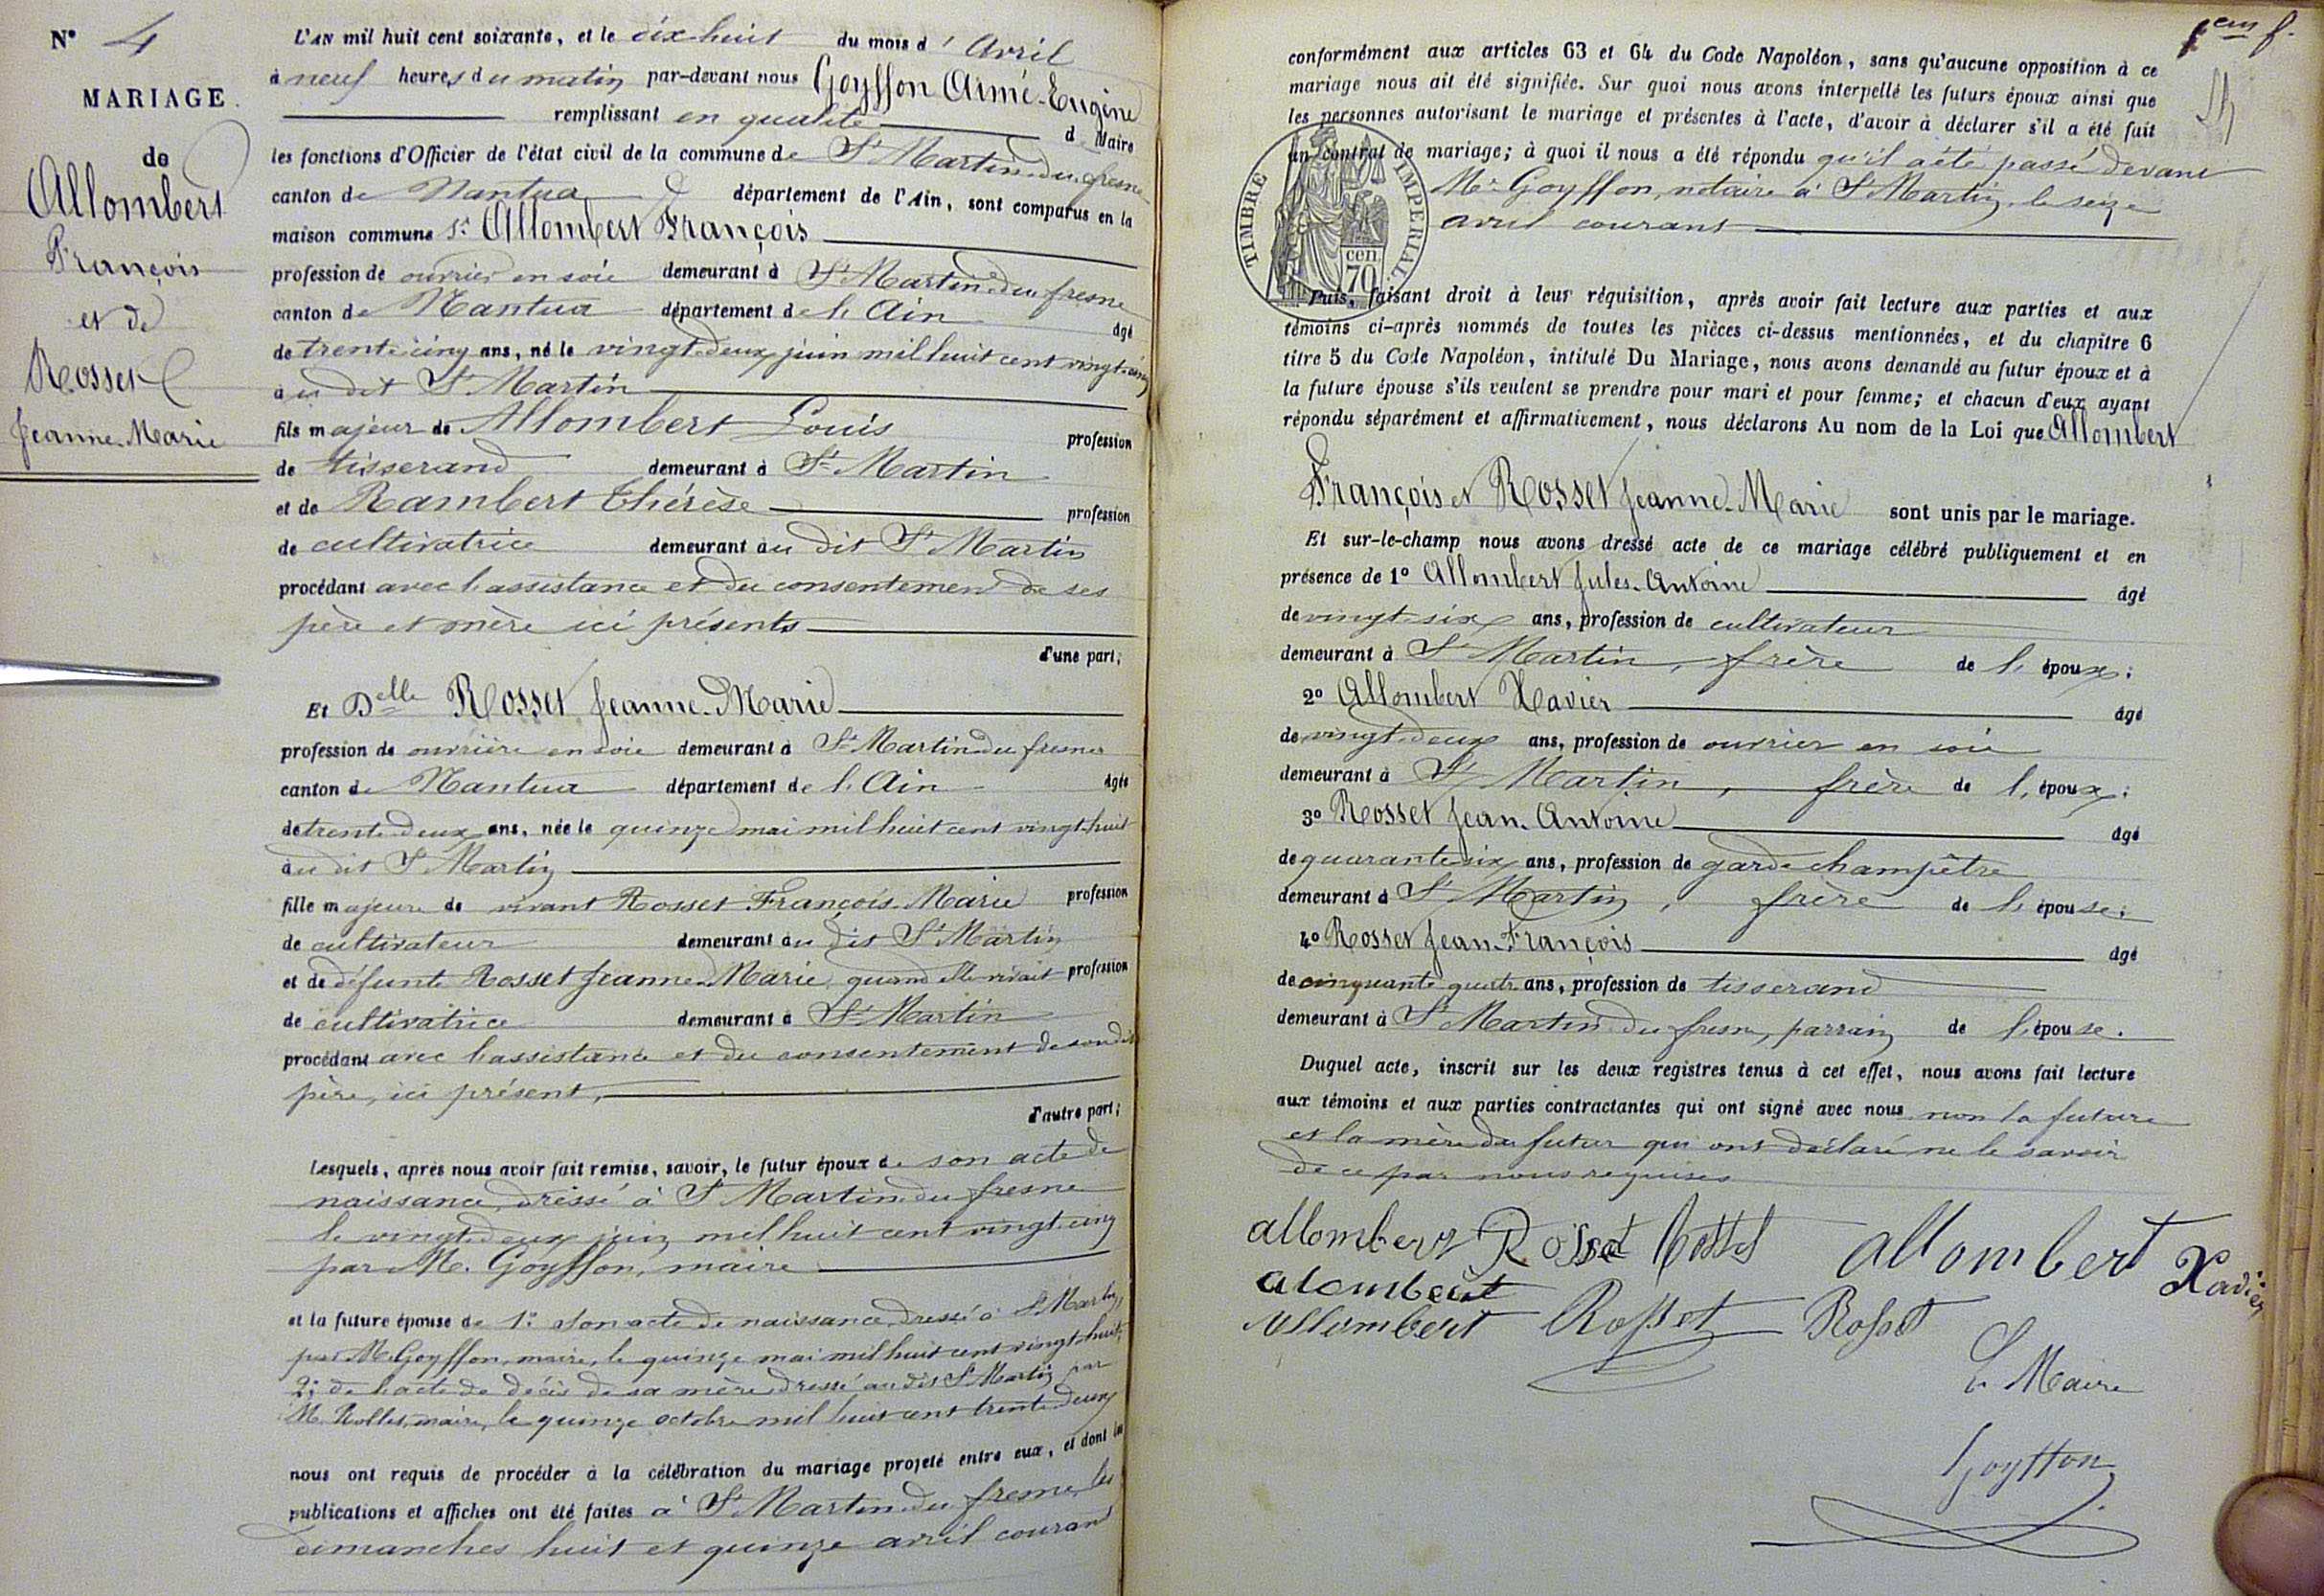 N° 4
MARIAGE
de
Allombert
François
et de
Rosset
Jeanne-Marie
L'AN mil huit cent soixante, et le dix-huit du mois d'Avril
à neuf heures du matin par-devant nous Goyffon Aimé-Eugène
remplissant en qualité de Maire
les fonctions d'Officier de l'état civil de la commune de St Martin-du-fresne
canton de Nantua département de l'Ain, sont comparus en la
maison commune 1° Allombert François
profession de ouvrier en soie demeurant à St Martin-du fresne
canton de Nantua département de l'Ain âgé
de trente-cinq ans, né le vingt-deux juin mil huit cent vingt-cinq
au dit St Martin
fils majeur de Allombert Louis profession
de tisserand demeurant à St Martin
et de Rambert Thérèse profession
de cultivatrice demeurant au dit St Martin
procédant avec l'assistance et du consentement de ses
père et mère ici présents
d'une part;
Et Delle Rosset Jeanne-Marie
profession de ouvrière en soie demeurant à St Martin du fresne
canton de Nantua département de l'Ain âgée
de trente-deux ans, née le quinze mai mil huit cent vingt-huit
au dit St Martin
fille majeure de vivant Rosset François Marie profession
de cultivateur demeurant au dit St Martin
et de défunte Rosset Jeanne-Marie, quand elle vivait profession
de cultivatrice demeurant à St Martin
procédant avec l'assistance et du consentement de son dit
père, ici présent,
d'autre part;
Lesquels, après nous avoir fait remise, savoir, le futur époux de son acte de
naissance dressé à St Martin du fresne
le vingt-deux juin mil huit cent vingt-cinq
par M. Goyffon, maire
et la future épouse de 1° son acte de naissance dressé à St Martin
par M. Goyffon, maire, le quinze mai mil huit cent vingt-huit,
2° de l'acte de décès de sa mère dressé au dit St Martin par
M. maire, le quinze octobre mil huit cent trente-deux
nous ont requis de procéder à la célébration du mariage projeté entre eux, et dont les
publications et affiches ont été faites à St Martin-du fresne les
dimanches huit et quinze avril courant
conformément aux articles 63 et 64 du Code Napoléon, sans qu'aucune opposition à ce
mariage nous ait été signifiée. Sur quoi nous avons interpellé les futurs époux ainsi que
les personnes autorisant le mariage et présentes à l'acte, d'avoir à déclarer s'il a été fait
un contrat de mariage; à quoi il nous a été répondu qu'il a été passé devant
Me Goyffon, notaire à St Martin, le seize
avril courant
TIMBRE IMPERIAL
cen
70
Puis, faisant droit à leur réquisition, après avoir fait lecture aux parties et aux
témoins ci-après nommés de toutes les pièces ci-dessus mentionnées, et du chapitre 6
titre 5 du Code Napoléon, intitulé Du Mariage, nous avons demandé au futur époux et à
la future épouse s'ils veulent se prendre pour mari et pour femme; et chacun d'eux ayant
répondu séparément et affirmativement, nous déclarons Au nom de la Loi que Allombert
François et Rosset Jeanne-Marie sont unis par le mariage.
Et sur-le-champ nous avons dressé acte de ce mariage célébré publiquement et en
présence de 1° Allombert Jules-Antoine âgé
de vingt-six ans, profession de cultivateur
demeurant à St Martin, frère de l'époux;
2° Allombert Xavier âgé
de vingt-deux ans, profession de ouvrier en soie
demeurant à St Martin, frère de l'époux;
3° Rosset Jean-Antoine âgé
de quarante-six ans, profession de garde champêtre
demeurant à St Martin, frère de l'épouse;
4° Rosset Jean-François âgé
de cinquante quatre ans, profession de tisserand
demeurant à St Martin-du fresne, parrain de l'épouse.
Duquel acte, inscrit sur les deux registres tenus à cet effet, nous avons fait lecture
aux témoins et aux parties contractantes qui ont signé avec nous non la future
et la mère du futur qui ont déclaré ne le savoir
de ce par nous requises
allombert Rosset Rosset allombert Xavier
alombert
allombert Rosset Rosset
Le Maire
Goyffon